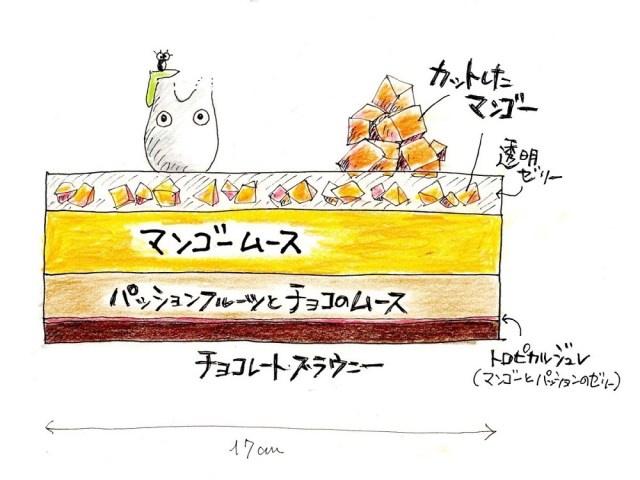 カットした
マンゴー
透明
ゼリー
マンゴームース
パッションフルーツとチョコのムース
チョコレートブラウニー
トロピカルジュレ
(マンゴーとパッションのゼリー)
17cm